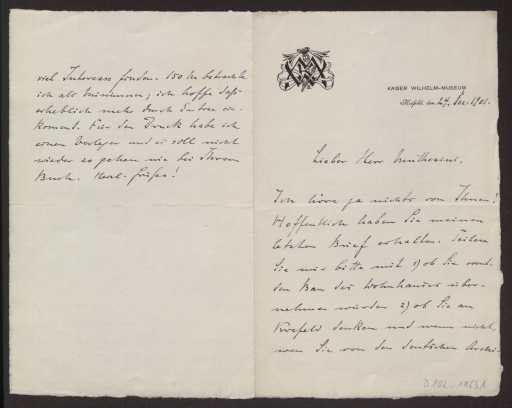 viel Interesse finden. 150 M betrachte
ich als Minimum; ich hoffe daß
erheblich mehr durch Entree ein-
kommt. Für den Druck habe ich
einen Verleger und es soll nicht
wieder so gehen wie bei Ihrem
Buch. Herzl. Grüße!
KAISER WILHELM-MUSEUM
Krefeld, den 24. Dec. 1901.
Lieber Herr Muthesius,
Ich höre ja nichts von Ihnen!
Hoffentlich haben Sie meinen
letzten Brief erhalten. Teilen
Sie mir bitte mit 1) ob Sie
den Bau des Wohnhauses über-
nehmen würden 2) ob Sie an
Krefeld denken und wenn nicht,
wen Sie von den deutschen Archi-